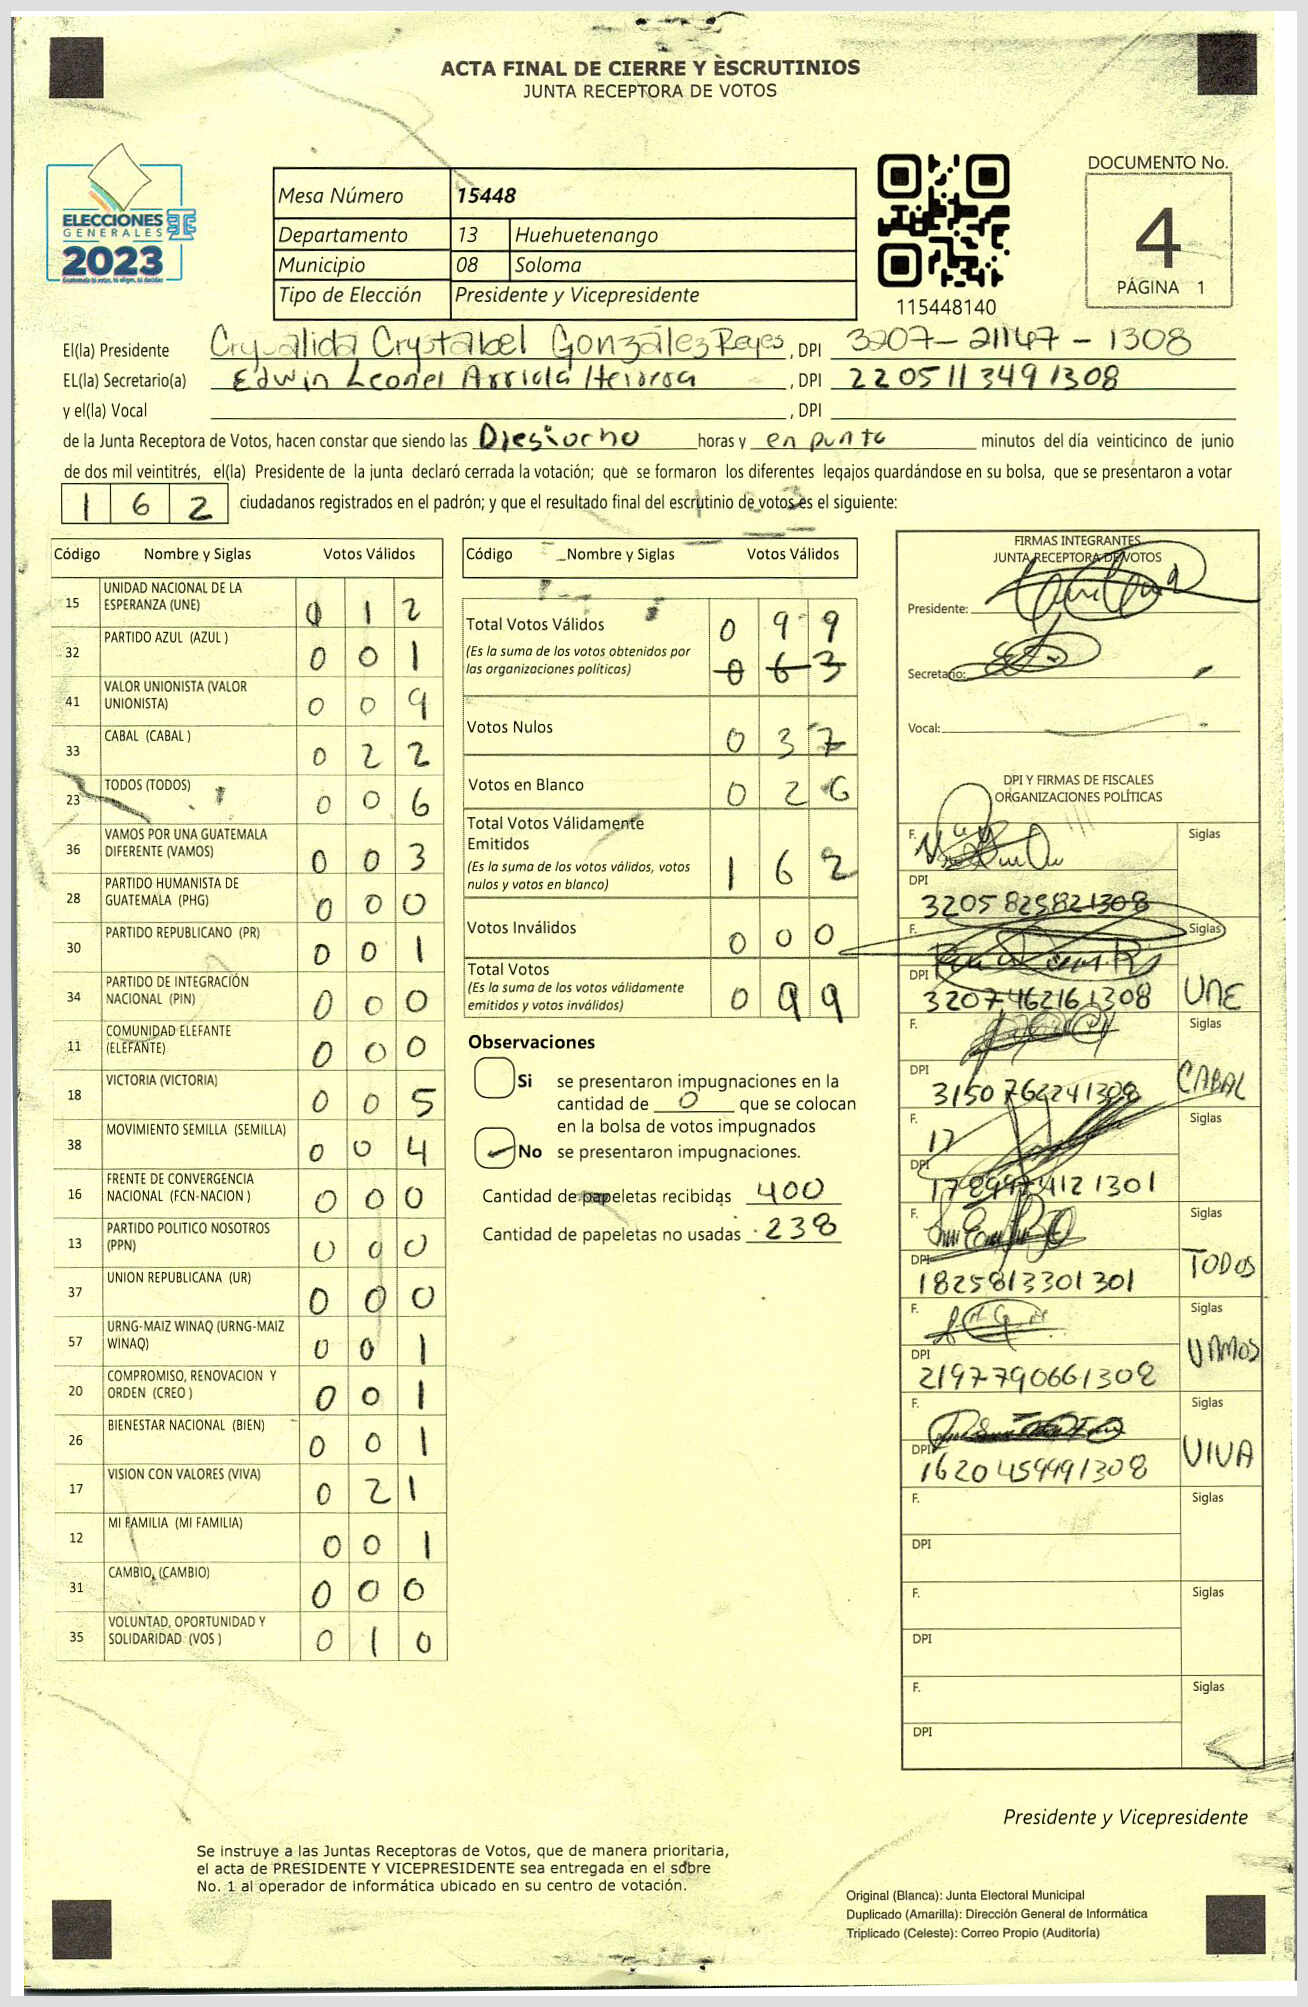 ACTA FINAL DE CIERRE Y ESCRUTINIOS
JUNTA RECEPTORA DE VOTOS
ELECCIONES
GENERALES
2023
Mesa Número 15448
Departamento 13 Huehuetenango
Municipio 08 Soloma
Tipo de Elección Presidente y Vicepresidente
115448140
DOCUMENTO No.
4
PÁGINA 1
El(la) Presidente Crysalida Crystabel González Reyes, DPI 3207-21147-1308
EL(la) Secretario(a) Edwin Leonel Arriola Herrera, DPI 2205113491308
y el(la) Vocal , DPI
de la Junta Receptora de Votos, hacen constar que siendo las Diesiocho horas y en punto minutos del día veinticinco de junio
de dos mil veintitrés, el(la) Presidente de la junta declaró cerrada la votación; que se formaron los diferentes legajos guardándose en su bolsa, que se presentaron a votar
1 6 2 ciudadanos registrados en el padrón; y que el resultado final del escrutinio de votos es el siguiente:
Código Nombre y Siglas Votos Válidos
15 UNIDAD NACIONAL DE LA ESPERANZA (UNE) 0 1 2
32 PARTIDO AZUL (AZUL ) 0 0 1
41 VALOR UNIONISTA (VALOR UNIONISTA) 0 0 9
33 CABAL (CABAL ) 0 2 2
23 TODOS (TODOS) 0 0 6
36 VAMOS POR UNA GUATEMALA DIFERENTE (VAMOS) 0 0 3
28 PARTIDO HUMANISTA DE GUATEMALA (PHG) 0 0 0
30 PARTIDO REPUBLICANO (PR) 0 0 1
34 PARTIDO DE INTEGRACIÓN NACIONAL (PIN) 0 0 0
11 COMUNIDAD ELEFANTE (ELEFANTE) 0 0 0
18 VICTORIA (VICTORIA) 0 0 5
38 MOVIMIENTO SEMILLA (SEMILLA) 0 0 4
16 FRENTE DE CONVERGENCIA NACIONAL (FCN-NACION ) 0 0 0
13 PARTIDO POLITICO NOSOTROS (PPN) 0 0 0
37 UNION REPUBLICANA (UR) 0 0 0
57 URNG-MAIZ WINAQ (URNG-MAIZ WINAQ) 0 0 1
20 COMPROMISO, RENOVACION Y ORDEN (CREO ) 0 0 1
26 BIENESTAR NACIONAL (BIEN) 0 0 1
17 VISION CON VALORES (VIVA) 0 2 1
12 MI FAMILIA (MI FAMILIA) 0 0 1
31 CAMBIO, (CAMBIO) 0 0 0
35 VOLUNTAD, OPORTUNIDAD Y SOLIDARIDAD (VOS ) 0 1 0
Código Nombre y Siglas Votos Válidos
Total Votos Válidos 0 9 9
(Es la suma de los votos obtenidos por
las organizaciones políticas) 0 6 3
Votos Nulos 0 3 7
Votos en Blanco 0 2 6
Total Votos Válidamente
Emitidos
(Es la suma de los votos válidos, votos
nulos y votos en blanco) 1 6 2
Votos Inválidos 0 0 0
Total Votos
(Es la suma de los votos válidamente
emitidos y votos inválidos) 0 9 9
Observaciones
Si se presentaron impugnaciones en la
cantidad de 0 que se colocan
en la bolsa de votos impugnados
No se presentaron impugnaciones.
Cantidad de papeletas recibidas 400
Cantidad de papeletas no usadas 238
FIRMAS INTEGRANTES
JUNTA RECEPTORA DE VOTOS
Presidente:
Secretario:
Vocal:
DPI Y FIRMAS DE FISCALES
ORGANIZACIONES POLÍTICAS
F. Siglas
DPI
3205825821308
F. Siglas
DPI UNE
3207462161308
F. Siglas
DPI CABAL
3150762241308
F. Siglas
DPI
1789974121301
F. Siglas
DPI TODOS
1825813301301
F. Siglas
DPI VAMOS
2197790661308
F. Siglas
DPI VIVA
1620459991308
F. Siglas
DPI
F. Siglas
DPI
F. Siglas
DPI
Presidente y Vicepresidente
Se instruye a las Juntas Receptoras de Votos, que de manera prioritaria,
el acta de PRESIDENTE Y VICEPRESIDENTE sea entregada en el sobre
No. 1 al operador de informática ubicado en su centro de votación.
Original (Blanca): Junta Electoral Municipal
Duplicado (Amarilla): Dirección General de Informática
Triplicado (Celeste): Correo Propio (Auditoría)